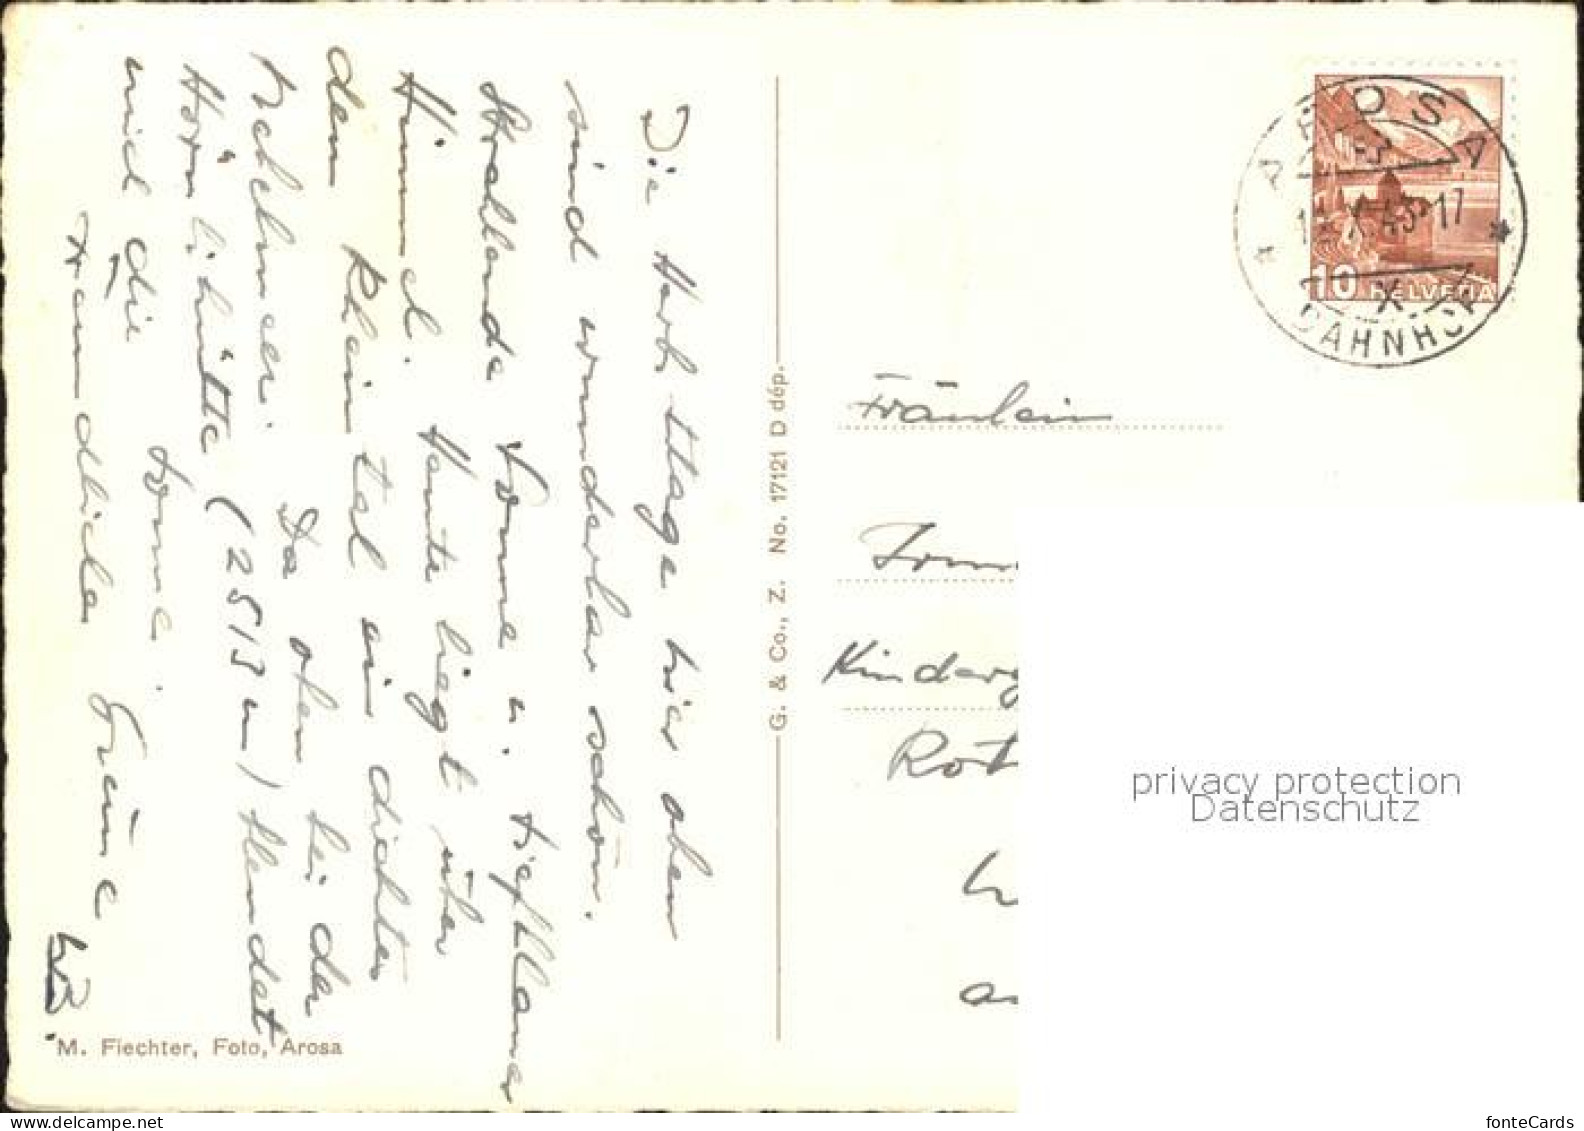 Die Herbsttage hier oben
sind wunderbar schön.
Strahlende Sonne u. tiefblauer
Himmel. Heute liegt über
dem Rheintal ein dichtes
Nebelmeer. Da oben bei der
Hörnlihütte (2513 m) blendet
mich die Sonne.
Freundliche Grüsse
M. Fiechter, Foto, Arosa
G. & Co., Z. No. 17121 D dép.
AROSA
X.43-17
BAHNHOF
10 HELVETIA
Fräulein
Kinderg
Rot
privacy protection
Datenschutz
fonteCards